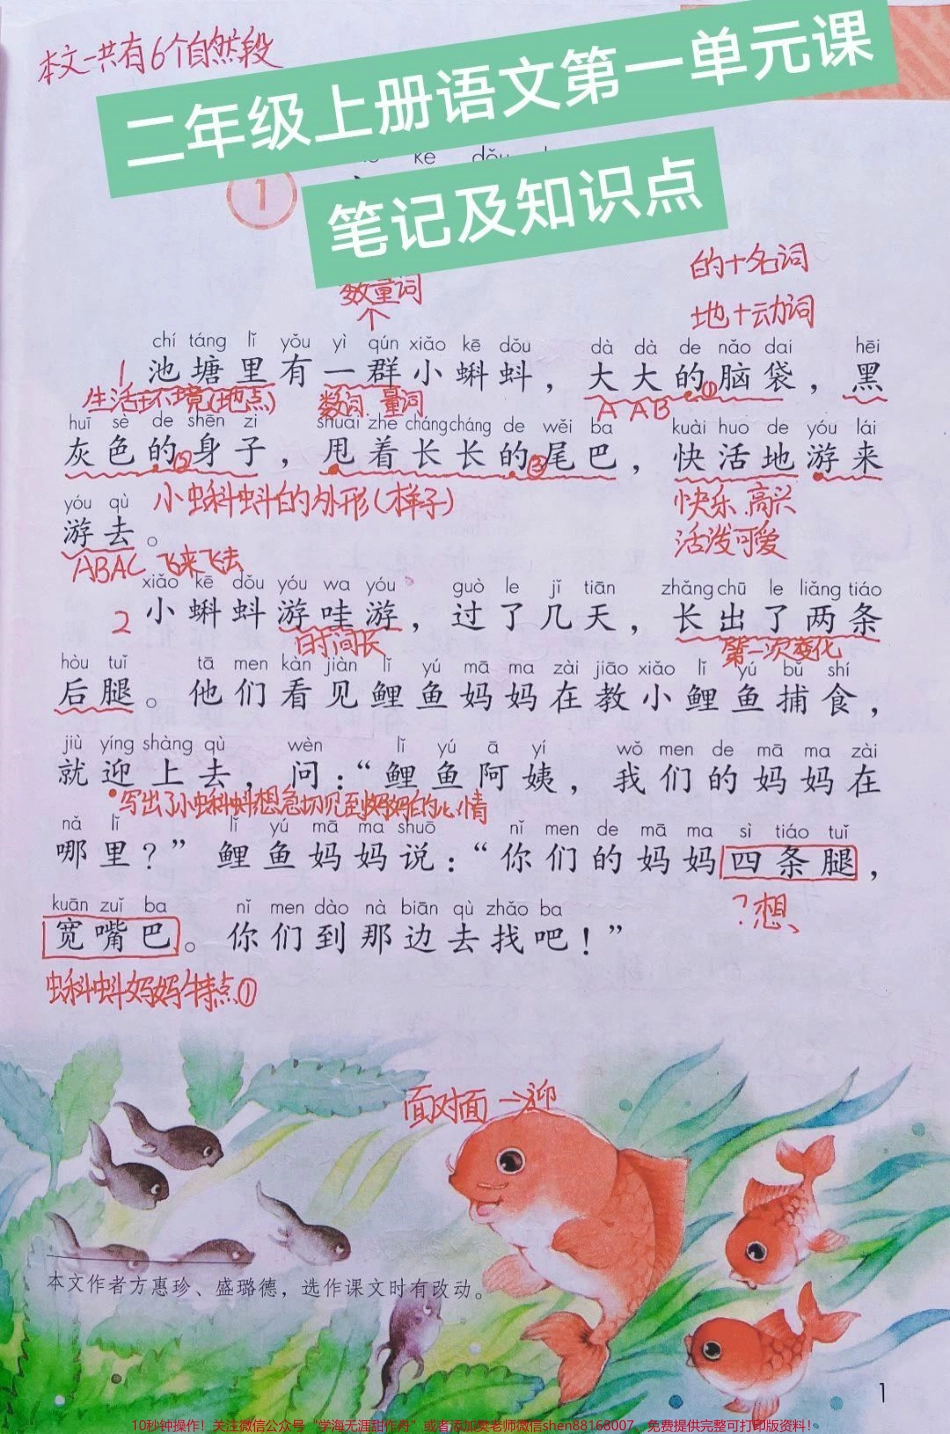 本文一共有6个自然段
二年级上册语文第一单元课
笔记及知识点
kē dǒu
1
数量词
个
的+名词
地+动词
chí táng lǐ yǒu yì qún xiǎo kē dǒu dà dà de nǎo dai hēi
1 池塘里有一群小蝌蚪，大大的①脑袋，黑
生活环境(地点) 数词 量词 AAB
huī sè de shēn zi shuǎi zhe cháng cháng de wěi ba kuài huo de yóu lái
灰色的②身子，甩着长长的③尾巴，快活地游来
yóu qù
游去。
小蝌蚪的外形(样子)
快乐 高兴
活泼可爱
ABAC 飞来飞去
xiǎo kē dǒu yóu wa yóu guò le jǐ tiān zhǎng chū le liǎng tiáo
2 小蝌蚪游哇游，过了几天，长出了两条
时间长 第一次变化
hòu tuǐ tā men kàn jiàn lǐ yú mā ma zài jiāo xiǎo lǐ yú bǔ shí
后腿。他们看见鲤鱼妈妈在教小鲤鱼捕食，
jiù yíng shàng qù wèn lǐ yú ā yí wǒ men de mā ma zài
就迎上去，问：“鲤鱼阿姨，我们的妈妈在
写出了小蝌蚪想急切见到妈妈的心情
nǎ lǐ lǐ yú mā ma shuō nǐ men de mā ma sì tiáo tuǐ
哪里？”鲤鱼妈妈说：“你们的妈妈四条腿，
kuān zuǐ ba nǐ men dào nà biān qù zhǎo ba
宽嘴巴。你们到那边去找吧！”
？想、
蝌蚪妈妈特点①
面对面→迎
本文作者方惠珍、盛璐德，选作课文时有改动。
1
10秒钟操作！关注微信公众号“学海无涯甜作舟”或者添加樊老师微信shen88168007，免费提供完整可打印版资料！